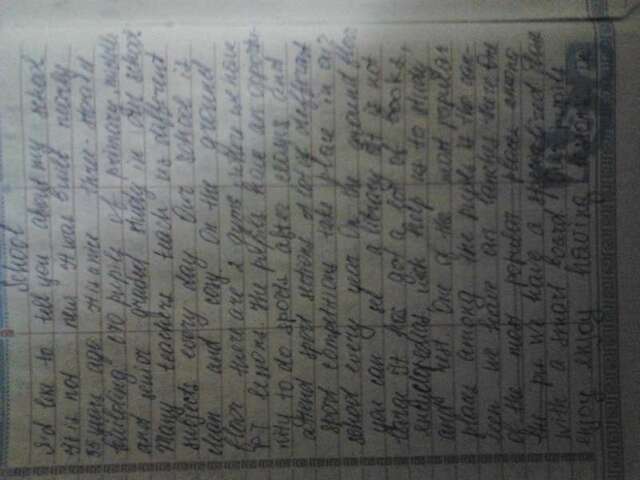 School
I'd like to tell you about my school
It is not new. It was built nearly
55 years ago. It is once three-storied
building. 670 pupils of primary, middle
and senior grades study in the school
Many teachers teach us different
subjects every day. Our school is
clean and cosy. On the ground
floor there are 2 gyms where we have
P.T lessons. The pupils have an opportu-
nity to do sports after classes and
attend sport sections. A lot of different
sport competitions take place in our
school every year. On the ground floor
you can see a library. It is not
large. It has got a lot of books,
encyclopedias, wich help us to study
and rest. One of the most popular
place among the pupils is the can-
teen we have an lunches there. One
of the most popular places among
the pu we have a specialized class
with a smart board pupils
enjoy enjoy having lessons in